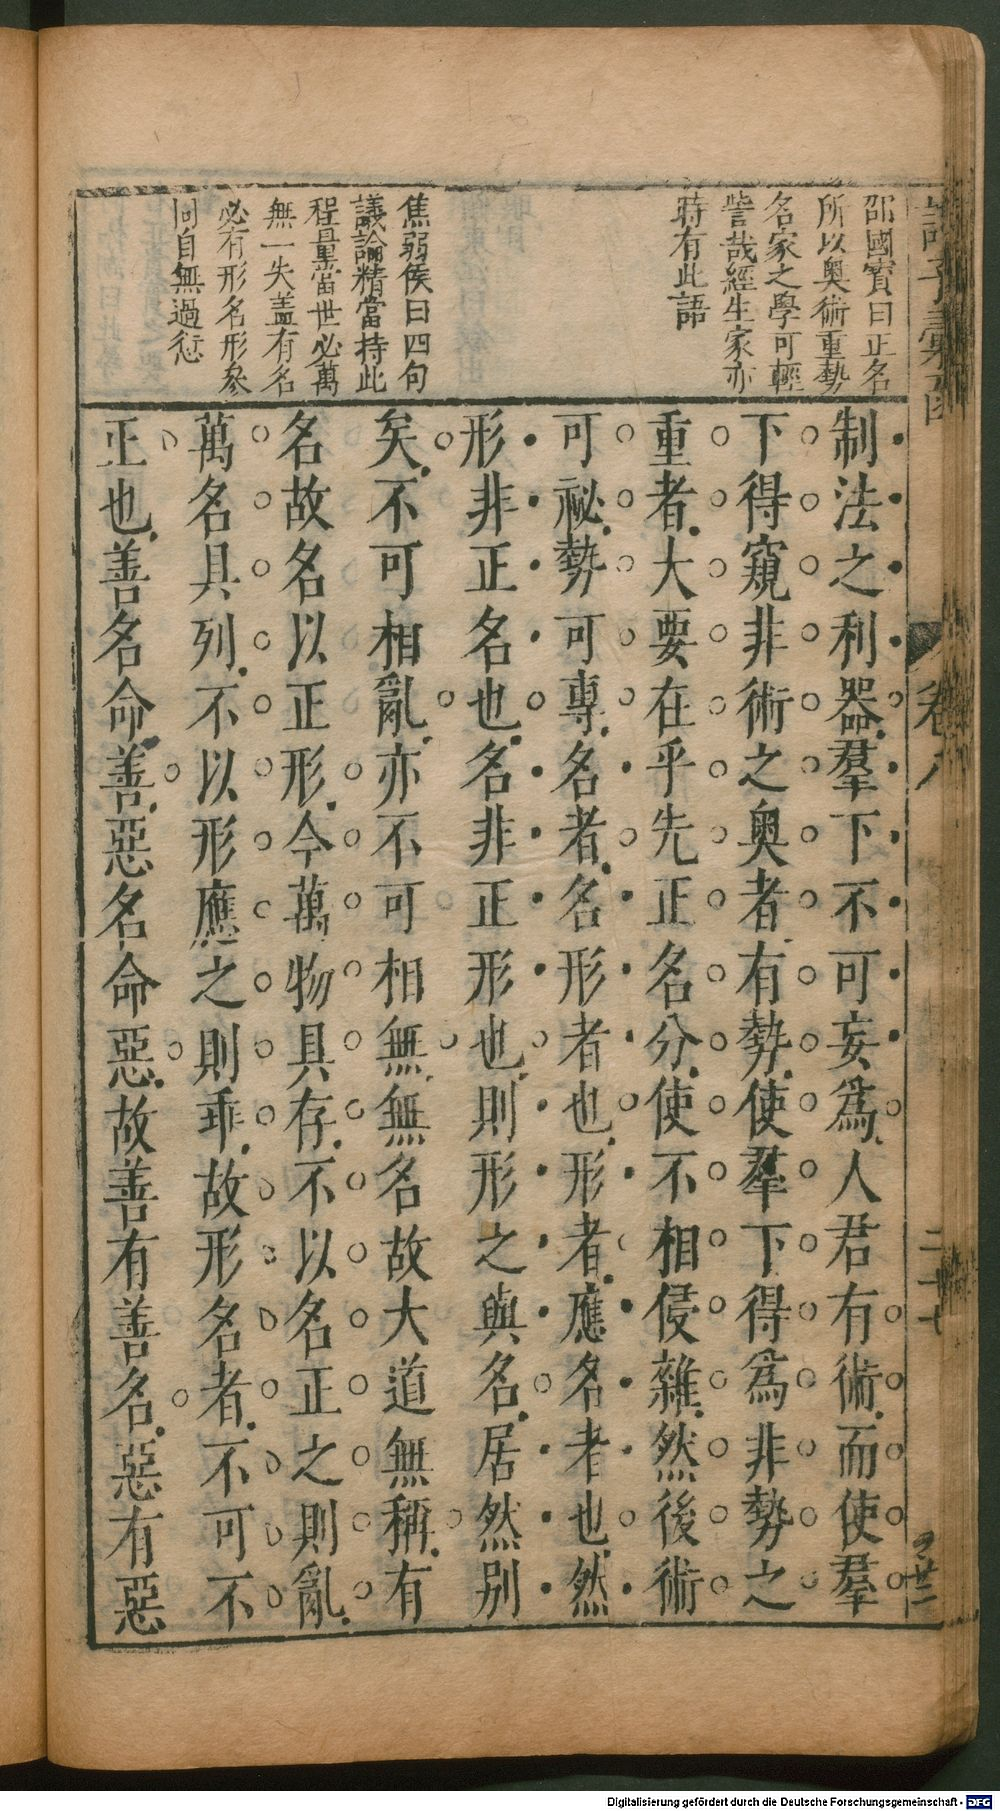 邵國賓曰正名
所以奥術重勢
名家之學可輕
訾哉經生家亦
時有此語
焦弱侯曰四句
議論精當持此
程量當世必萬
無一失盖有名
必有形名形參
同自無過愆
制法之利器羣下不可妄爲人君有術而使羣
下得窺非術之奥者有勢使羣下得爲非勢之
重者大要在乎先正名分使不相侵雜然後術
可祕勢可專名者名形者也形者應名者也然
形非正名也名非正形也則形之與名居然别
矣不可相亂亦不可相無無名故大道無稱有
名故名以正形今萬物具存不以名正之則亂
萬名具列不以形應之則乖故形名者不可不
正也善名命善惡名命惡故善有善名惡有惡
卷八
二十七
Digitalisierung gefördert durch die Deutsche Forschungsgemeinschaft - DFG